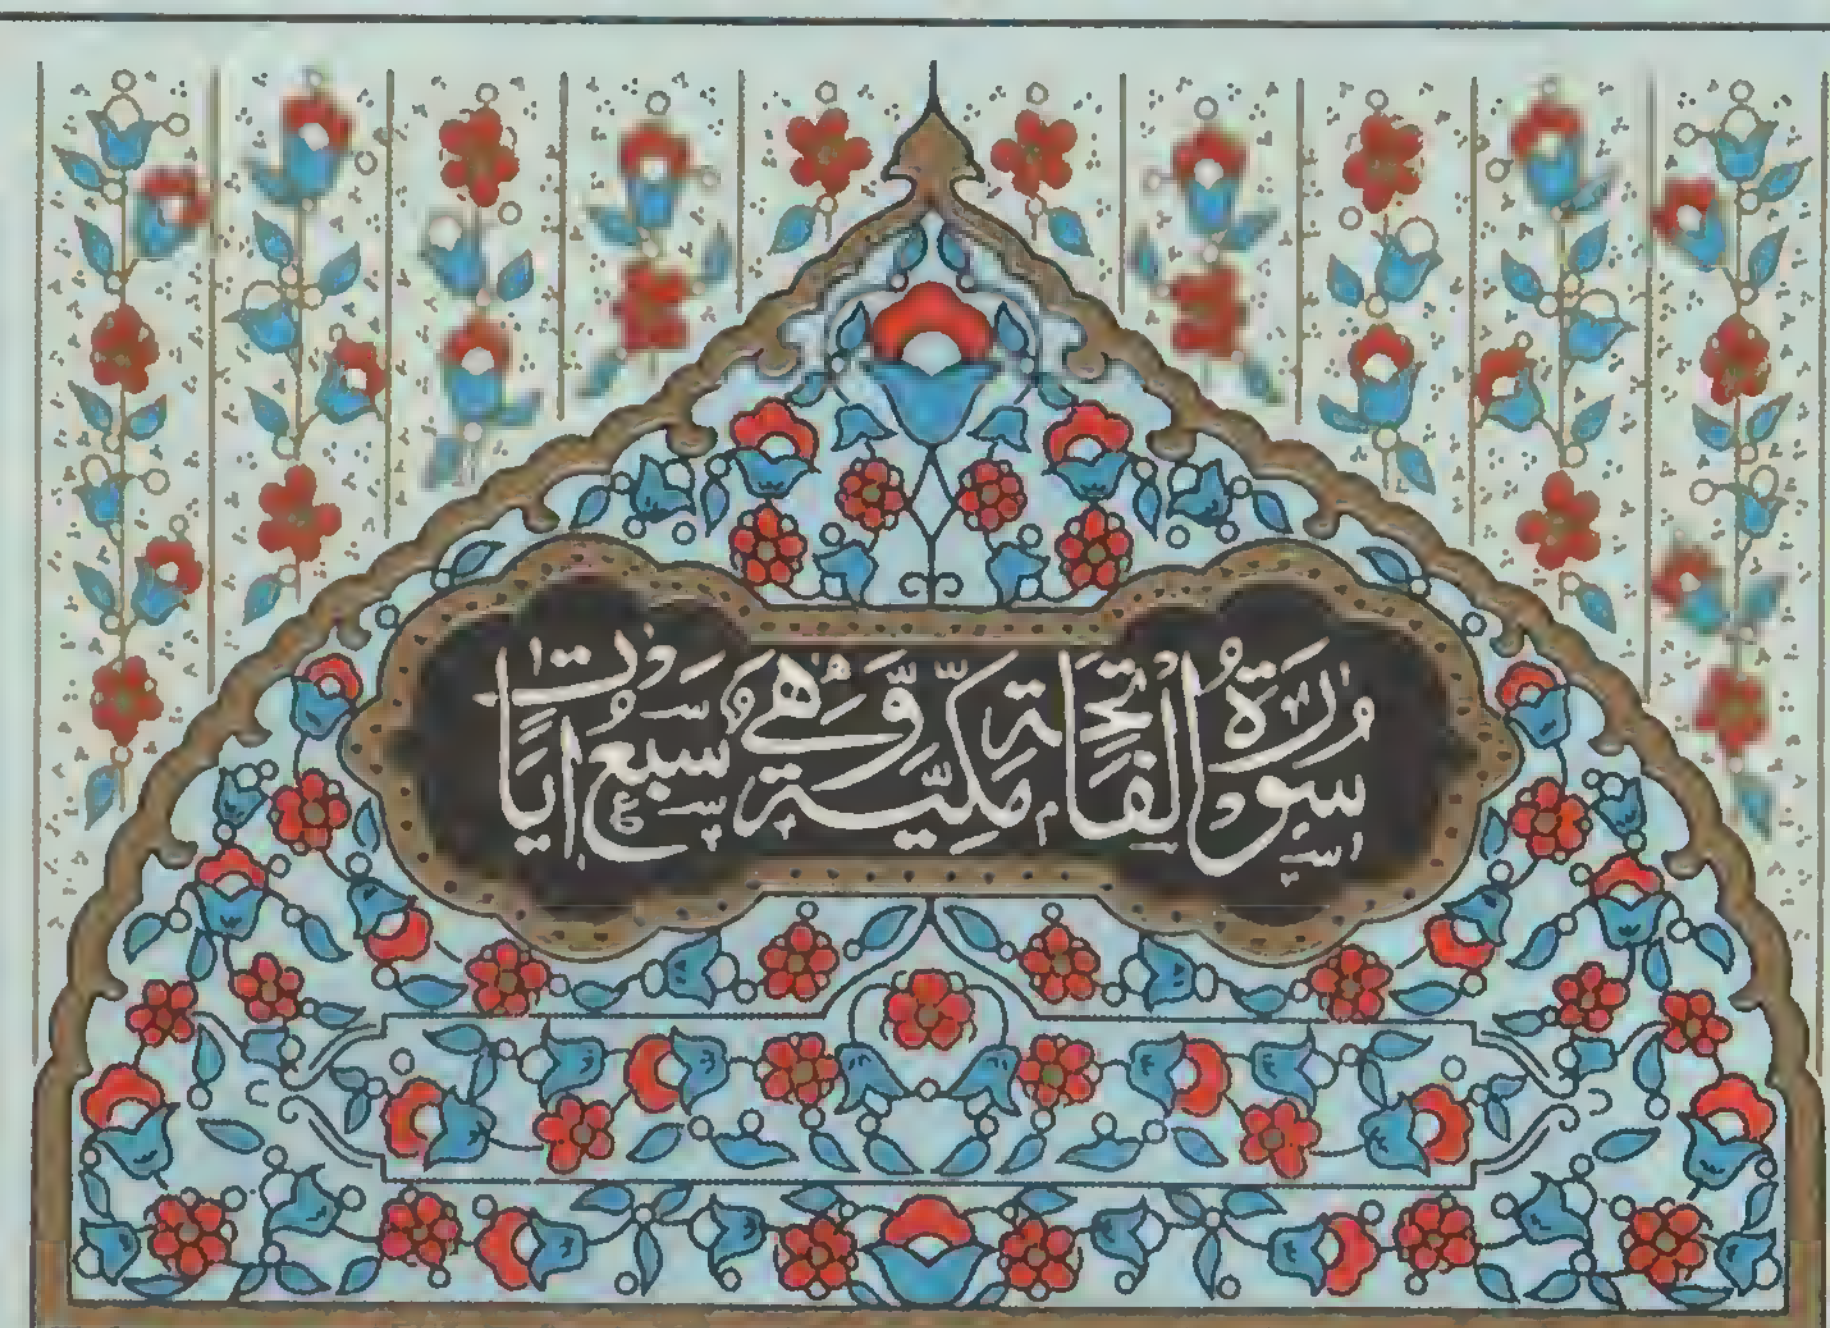 سُورَةُ الْفَاتِحَةِ مَكِّيَّةٌ وَّهِيَ سَبْعُ اٰيَاتٍ